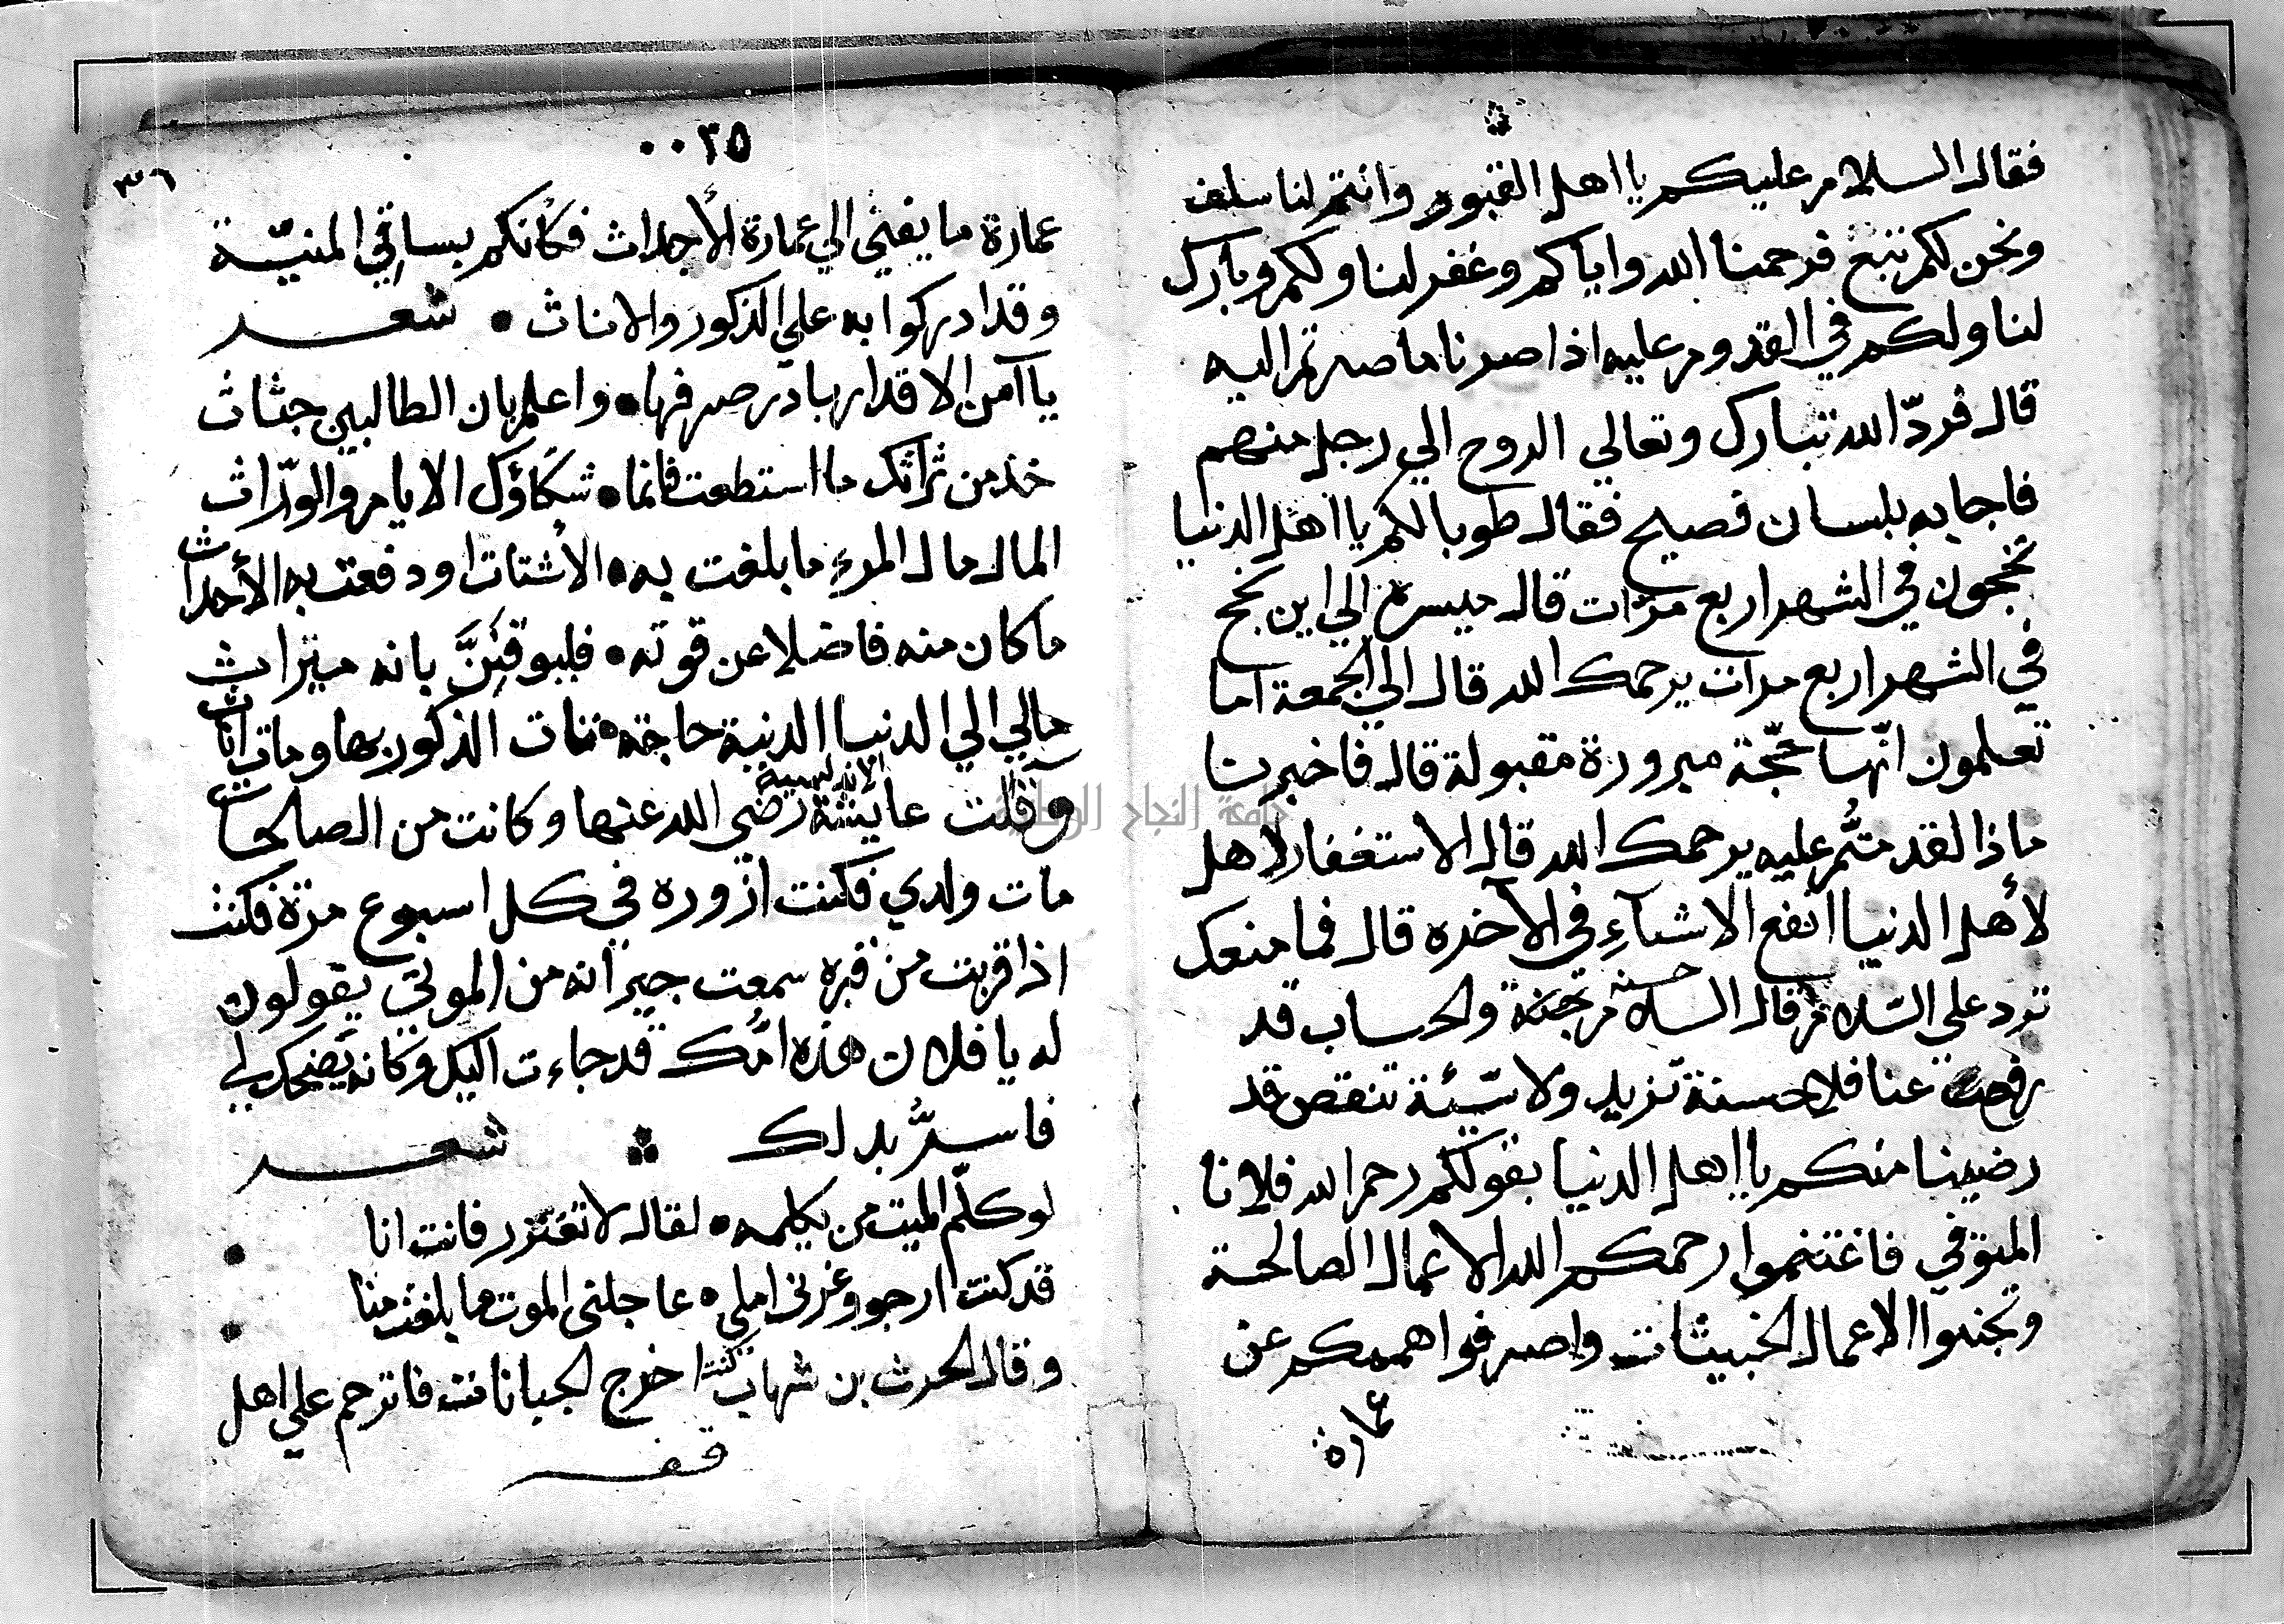 فقال السلام عليكم يا اهل القبور وانتم لنا سلف
ونحن لكم تبع فرحمنا الله واياكم وغفر لنا ولكم وبارك
لنا ولكم في القدوم عليه اذا صرنا ما صرتم اليه
قال فردّ الله تبارك وتعالي الروح الي رجل منهم
فاجابه بلسان فصيح فقال طوبا لكم يا اهل الدنيا
تحجون في الشهر اربع مرّات قال ميسرة الي اين نحج
في الشهر اربع مرات يرحمك الله قال الي الجمعة اما
تعلمون انّها حجّة مبرورة مقبولة قال فاخبرنا
ماذا لقد متُّم عليه يرحمك الله قال الاستغفار لاهل
لأهل الدنيا انفع الاشيآءِ في الآخره قال فما منعك
ترد علي السّلام قال السلام حسنه والحساب قد
رفعت عنا فلا حسنة تزيد ولا سيّئة تنقص قد
رضينا منكم يا اهل الدنيا بقولكم رحم الله فلانا
المتوفي فاغتنموا رحمكم الله الاعمال الصالحة
وتجنبوا الاعمال الخبيثات واصرفوا هممكم عن
عمارة
٠٠٣٥
٣٦
عمارة ما يفني الي عمارة الأجداث فكأنكم بساقي المنيّة
وقد ادركوا به علي الذكور والاناث • شعر
يا آمن الاقدار بادر صرفها • واعلم بان الطالبين حثاث
خذ من تراثك ما استطعت فانما • شركاؤك الايام والورّاث
المال مال المرءِ ما بلغت به • الأشتات او دفعت به الأحداث
ما كان منه فاضلا عن قوته • فليوقنَنَّ بانه ميراث
مالي الي الدنيا الدنية حاجة • تنات الذكور بها ومات اناث
وقالت عايشة الاندلسية رضي الله عنها وكانت من الصالحات
مات ولدي فكنت ازوره في كل اسبوع مرّة فكنت
اذا قربت من قبره سمعت جيرانه من الموتي يقولون
له يا فلان هذه امُّك قد جاءت اليك وكانه يضحك لي
فاسرُّ بذلك شعر
لو كلّم الميت من يكلمه • لقال لا تغترر فانت انا •
قد كنت ارجو وغرني املي • عاجلني الموت ما بلغت منا •
وقال الحرث بن شهاب كنت اخرج لجبانات فاترحم علي اهل